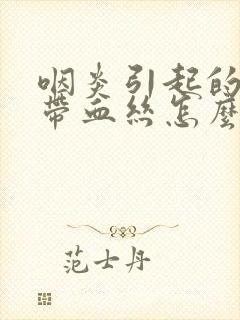 咽炎引起的
带血丝怎麼
范士丹